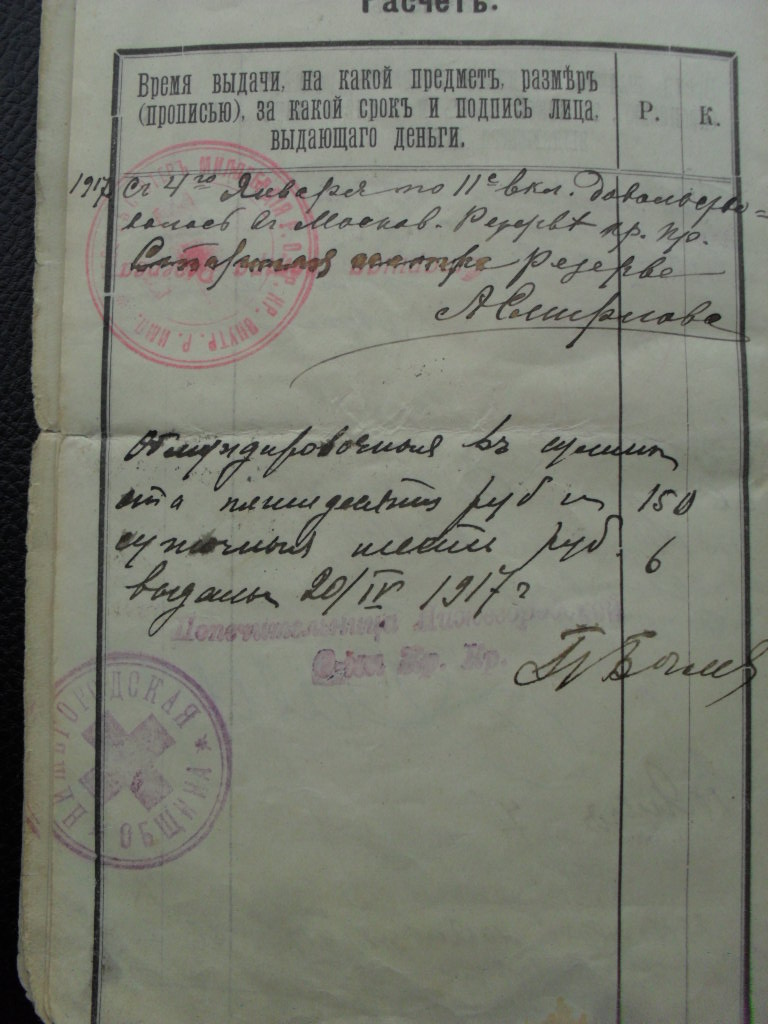 Расчетъ.
Время выдачи, на какой предметъ, размѣръ
(прописью), за какой срокъ и подпись лица,
выдающаго деньги.
Р.
К.
1917 Съ 4го Января по 11е вкл. довольство=
валась въ Москов. Резервѣ кр. кр.
Старшая сестра резерва
АСмирнова
Обмундировочныя въ сумме
ста пятидесяти руб и 150
суточныя шесть руб. 6
выданы 20/IV 1917г
Попечительница
Общины Кр. Кр.
НИЖЕГОРОДСКАЯ
ОБЩИНА